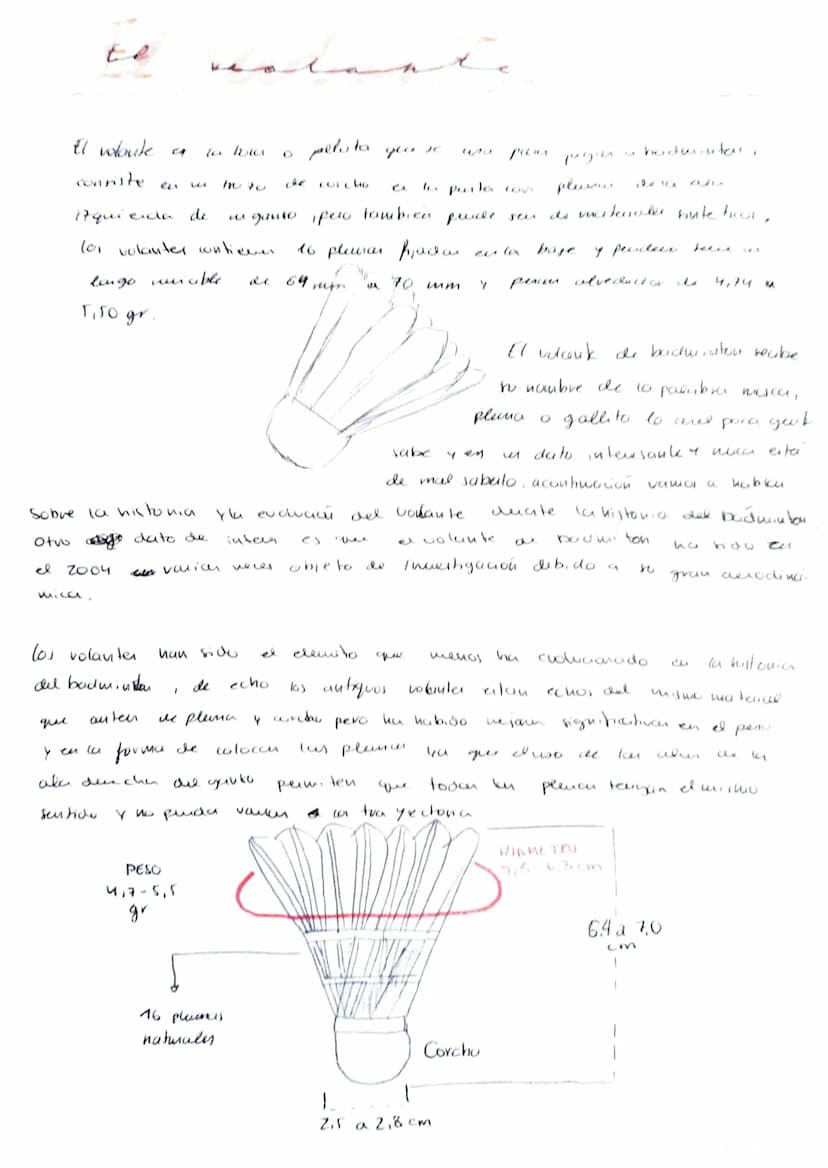 El volante
El volante es la bola o pelota que se usa para jugar a badminton,
consiste en un trozo de corcho en la punta con plumas de la ala
izquierda de un ganso, pero tambien puede ser de materiales sinteticos,
los volantes contienen 16 plumas fijadas en la base y pueden tener un
largo variable de 64 mm a 70 mm y pesan alrededor de 4,74 a
5,50 gr.
El volante de badminton recibe
su nombre de la palabra mosca,
pluma o gallito lo cual poca gent
sabe y es un dato interesante y nunca está
de mal saberlo. acontinuación vamos a hablar
sobre la historia y la evolución del volante durante la historia del badminton
Otro dato de interes es que el volante de badminton ha sido en
el 2004 varias veces objeto de investigación debido a su gran aerodiná-
mica.
Los volantes han sido el elemento que menos ha evolucionado en la historia
del badminton, de echo los antiguos volantes estan echos del mismo material
que antes de pluma y corcho pero ha habido mejoras significativas en el peso
y en la forma de colocar las plumas ya que el uso de las de la
ala derecha del ganso permiten que todas las plumas tengan el mismo
sentido y no pueda variar la trayectoria
DIAMETRO
5,8-6.8 cm
PESO
4,7-5,5
gr
6.4 a 7.0
cm
16 plumas
naturales
Corcho
2,5 a 2,8 cm